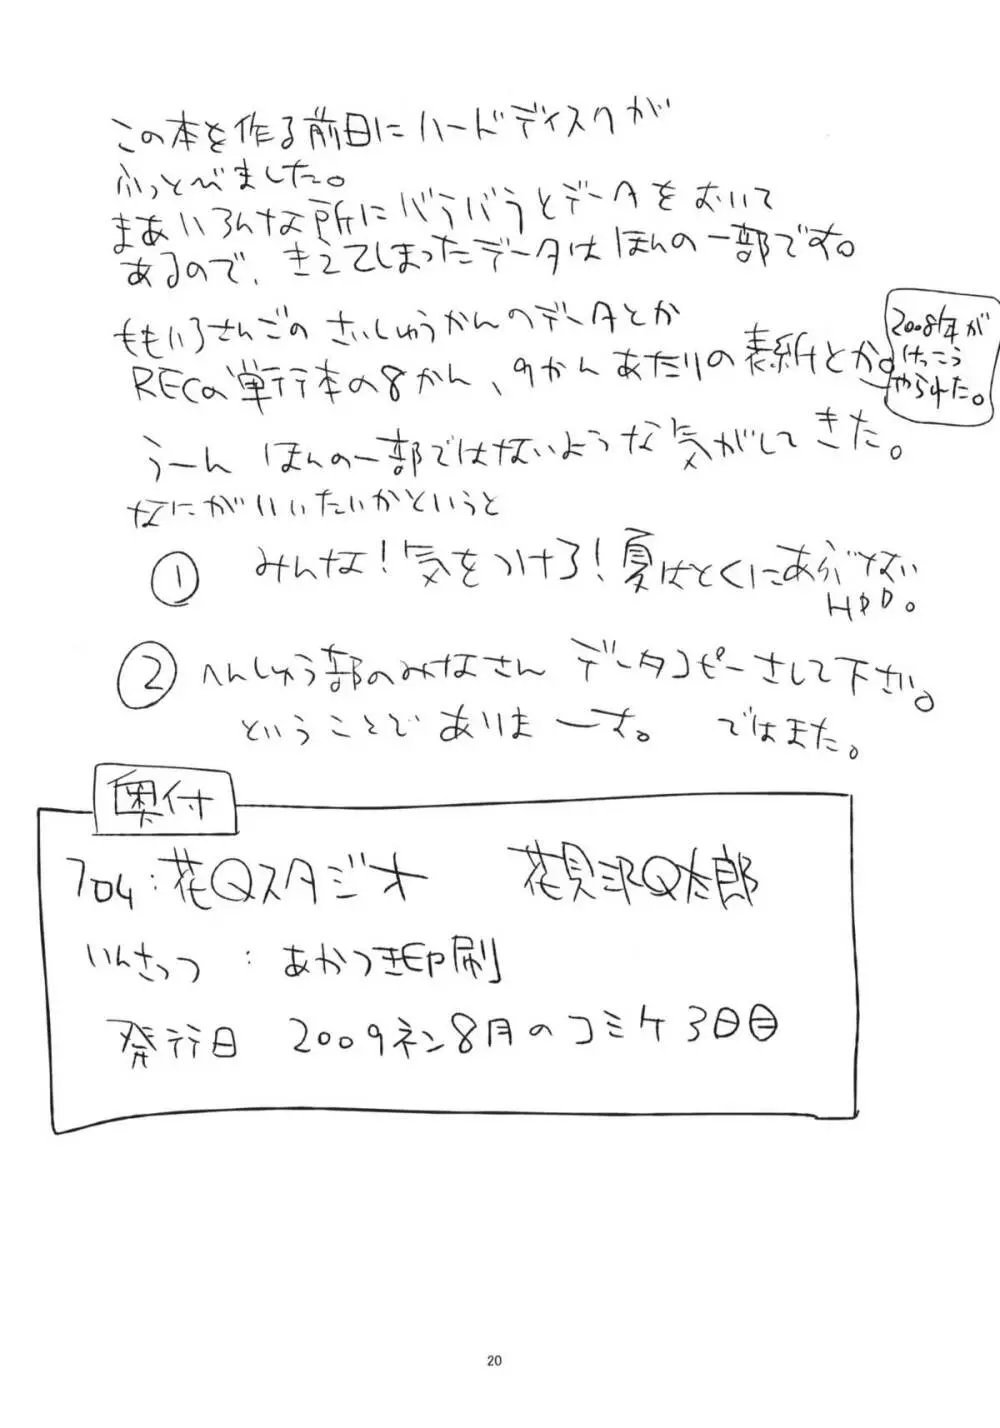 この本を作る前日にハードディスクが
ふっとべました。
まあいろんな所にバラバラとデータをおいて
あるので、きえてしまったデータはほんの一部です。
ももいろさんごのさいしゅうかんのデータとか
RECの単行本の8かん、9かんあたりの表紙とか。
2008年が
けっこう
やられた。
うーん ほんの一部ではないような気がしてきた。
なにがいいたいかというと
① みんな!気をつけろ!夏はとくにあぶない
HDD。
② へんしゅう部のみなさん データコピーさして下さい。
ということでありまーす。 ではまた。
奥付
花Qスタジオ 花見沢Q太郎
いんさつ : あかつき印刷
発行日 2009ネン8月のコミケ3日目
20